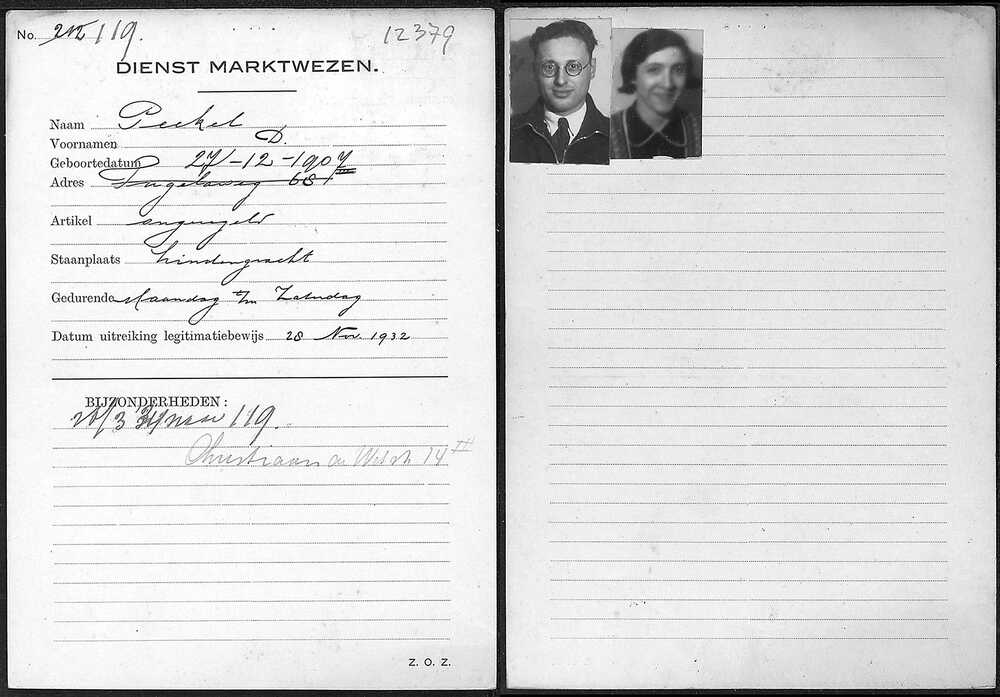 No. 212 119.
12379
DIENST MARKTWEZEN.
Naam Peekel
Voornamen D.
Geboortedatum 27-12-1907
Adres 68 I
Artikel
Staanplaats Lindengracht
Gedurende Maandag t/m Zaterdag
Datum uitreiking legitimatiebewijs 28 Nov. 1932
BIJZONDERHEDEN:
26/3 34 naar 119.
Christiaan de Wetstr 14 III
Z. O. Z.